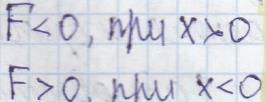 F<0, при x>0
F>0, при x<0